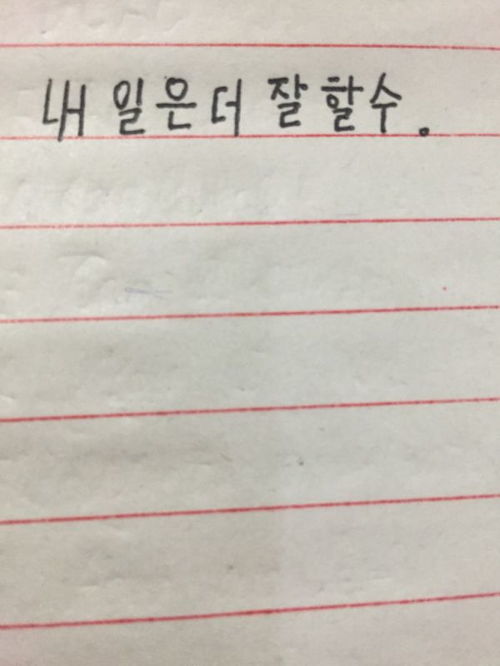 내일은 더 잘 할수.